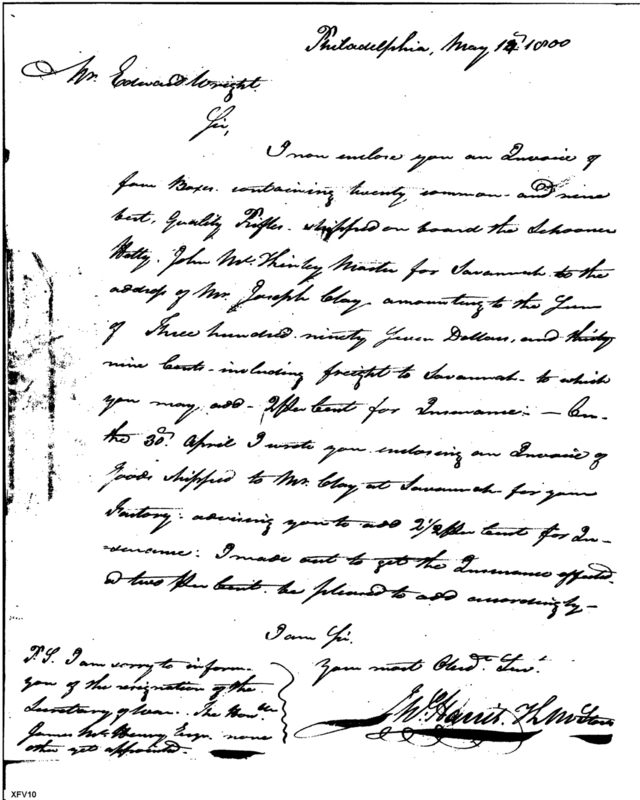 Philadelphia, May 12th 1800
Mr. Edward Wright.
Sir,
I now enclose you an Invoice of
four Boxes. containing twenty common and nine
best, Quality Rifles. shipped on board the Schooner
Hetty. John McThinley Master for Savannah to the
address of Mr. Joseph Clay amounting to the Sum
of Three hundred ninety Seven Dollars, and thirty
nine Cents - including freight to Savannah - to which
you may add - 2 Per Cent for Insurance: - On
the 30th. April I wrote you enclosing an Invoice of
Goods shipped to Mr. Clay at Savannah for your
Factory. advising you to add 2 1/2 Per Cent for In-
-surance: I made out to get the Insurance effected
at two Per Cent. be pleased to add accordingly -
I am Sir.
Your most Obedt. Servt.
Jno. Harris. Kr M Stores
P.S. I am sorry to inform
you of the resignation of the
Secretary of War. The Honble.
James McHenry Esqr. none
other yet appointed.
XFV10